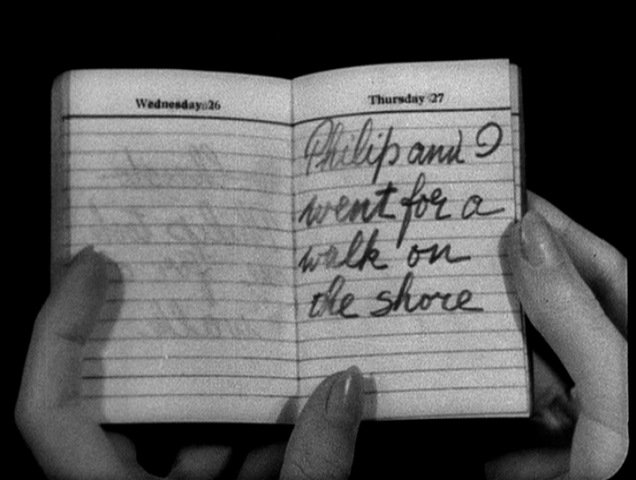 Wednesday 26
Thursday 27
Philip and I
went for a
walk on
the shore